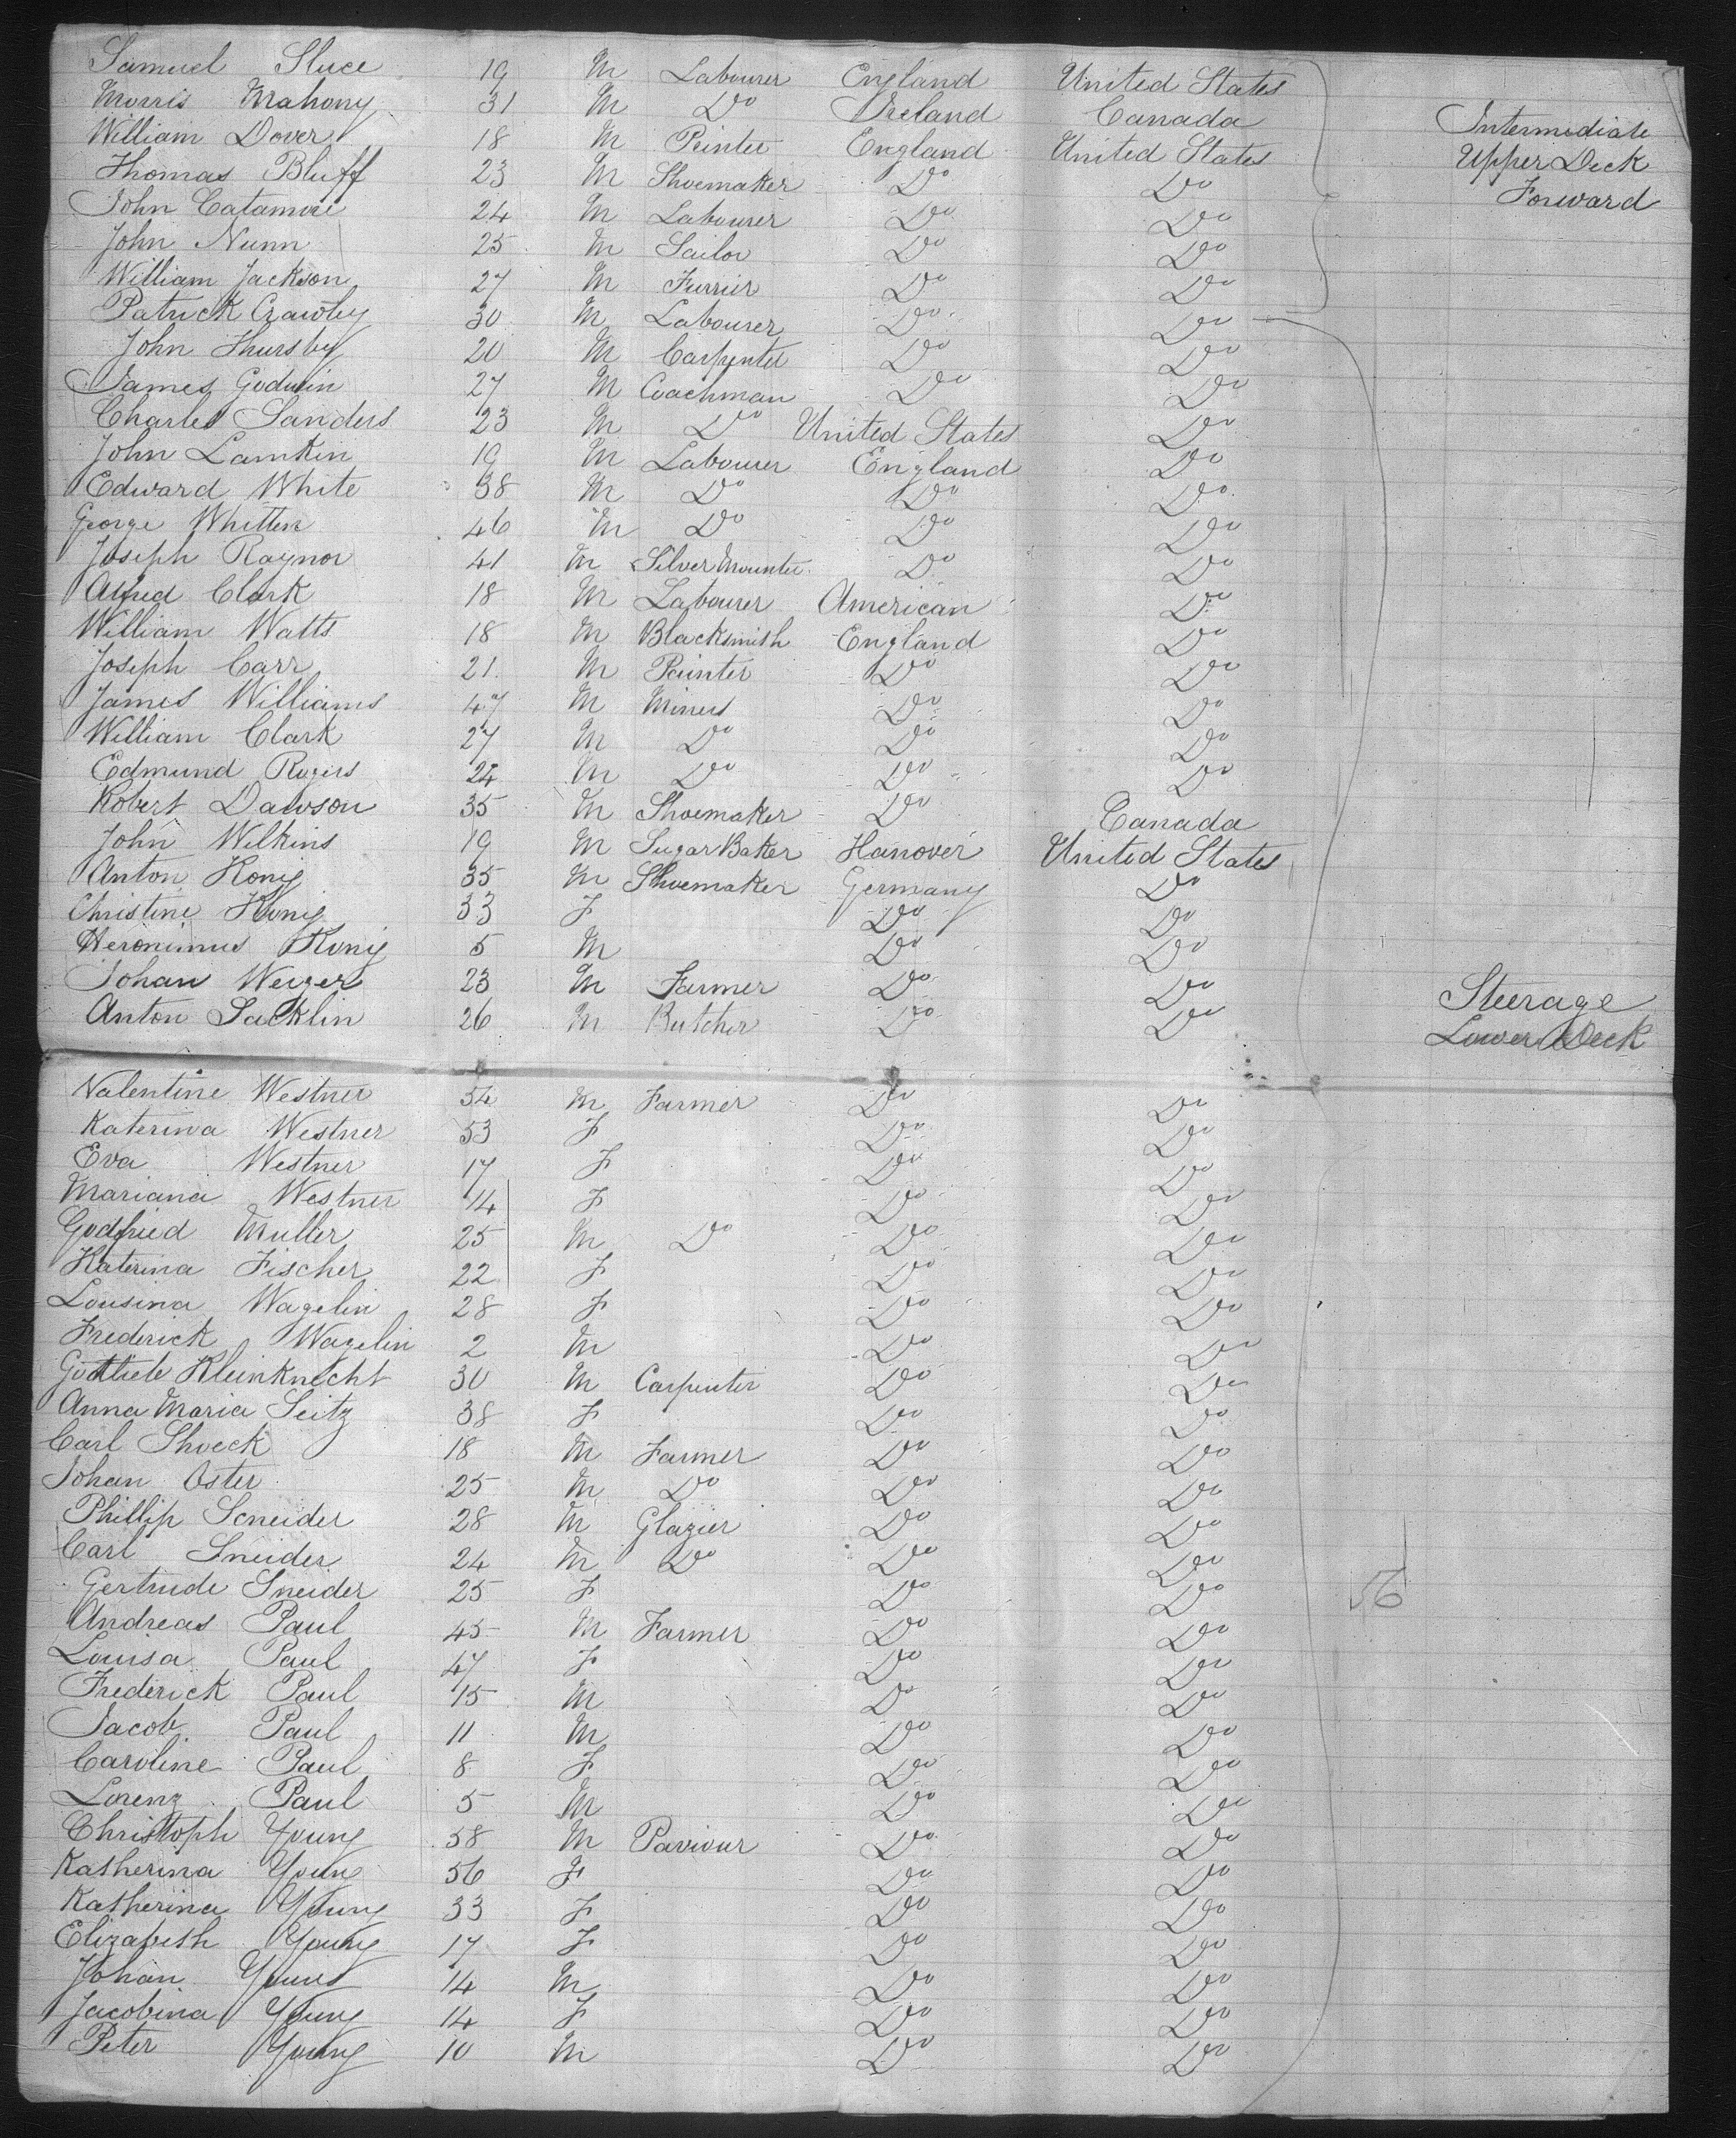 Samuel Sluce 19 M Labourer England United States
Morris Mahony 31 M Do Ireland Canada
William Dover 18 M Printer England United States
Intermediate
Upper Deck
Forward
Thomas Bluff 23 M Shoemaker Do Do
John Catamore 24 M Labourer Do Do
John Nunn 25 M Sailor Do Do
William Jackson 27 M Furrier Do Do
Patrick Crawley 30 M Labourer Do Do
John Thursby 20 M Carpenter Do Do
James Godwin 27 M Coachman Do Do
Charles Sanders 23 M Do United States Do
John Lamkin 19 M Labourer England Do
Edward White 38 M Do Do Do
George Whitten 46 M Do Do Do
Joseph Raynor 41 M Silver Mounter Do Do
Alfred Clark 18 M Labourer American Do
William Watts 18 M Blacksmith England Do
Joseph Carr 21 M Painter Do Do
James Williams 47 M Miner Do Do
William Clark 27 M Do Do Do
Edmund Rogers 24 M Do Do Do
Robert Dawson 35 M Shoemaker Do Canada
John Wilkins 19 M Sugar Baker Hanover United States
Anton Konig 35 M Shoemaker Germany Do
Christine Konig 33 F Do Do
Heronimus Konig 5 M Do Do
Johan Weizer 23 M Farmer Do Do
Anton Sacklin 26 M Butcher Do Do
Steerage
Lower Deck
Valentine Westner 54 M Farmer Do Do
Katerina Westner 53 F Do Do
Eva Westner 17 F Do Do
Mariana Westner 14 F Do Do
Godfried Muller 25 M Do Do Do
Katerina Fischer 22 F Do Do
Lousina Wagelin 28 F Do Do
Frederick Wagelin 2 M Do Do
Gottlieb Kleinknecht 30 M Carpenter Do Do
Anna Maria Seitz 38 F Do Do
Carl Shoeck 18 M Farmer Do Do
Johan Oster 25 M Do Do Do
Phillip Scneider 28 M Glazier Do Do
Carl Sneider 24 M Do Do Do
Gertrude Sneider 25 F Do Do
56
Andreas Paul 45 M Farmer Do Do
Louisa Paul 47 F Do Do
Frederick Paul 15 M Do Do
Jacob Paul 11 M Do Do
Caroline Paul 8 F Do Do
Lorenz Paul 5 M Do Do
Christoph Young 58 M Paviour Do Do
Katherina Young 56 F Do Do
Katherina Young 33 F Do Do
Elizabeth Young 17 F Do Do
Johan Young 14 M Do Do
Jacobina Young 14 F Do Do
Peter Young 10 M Do Do